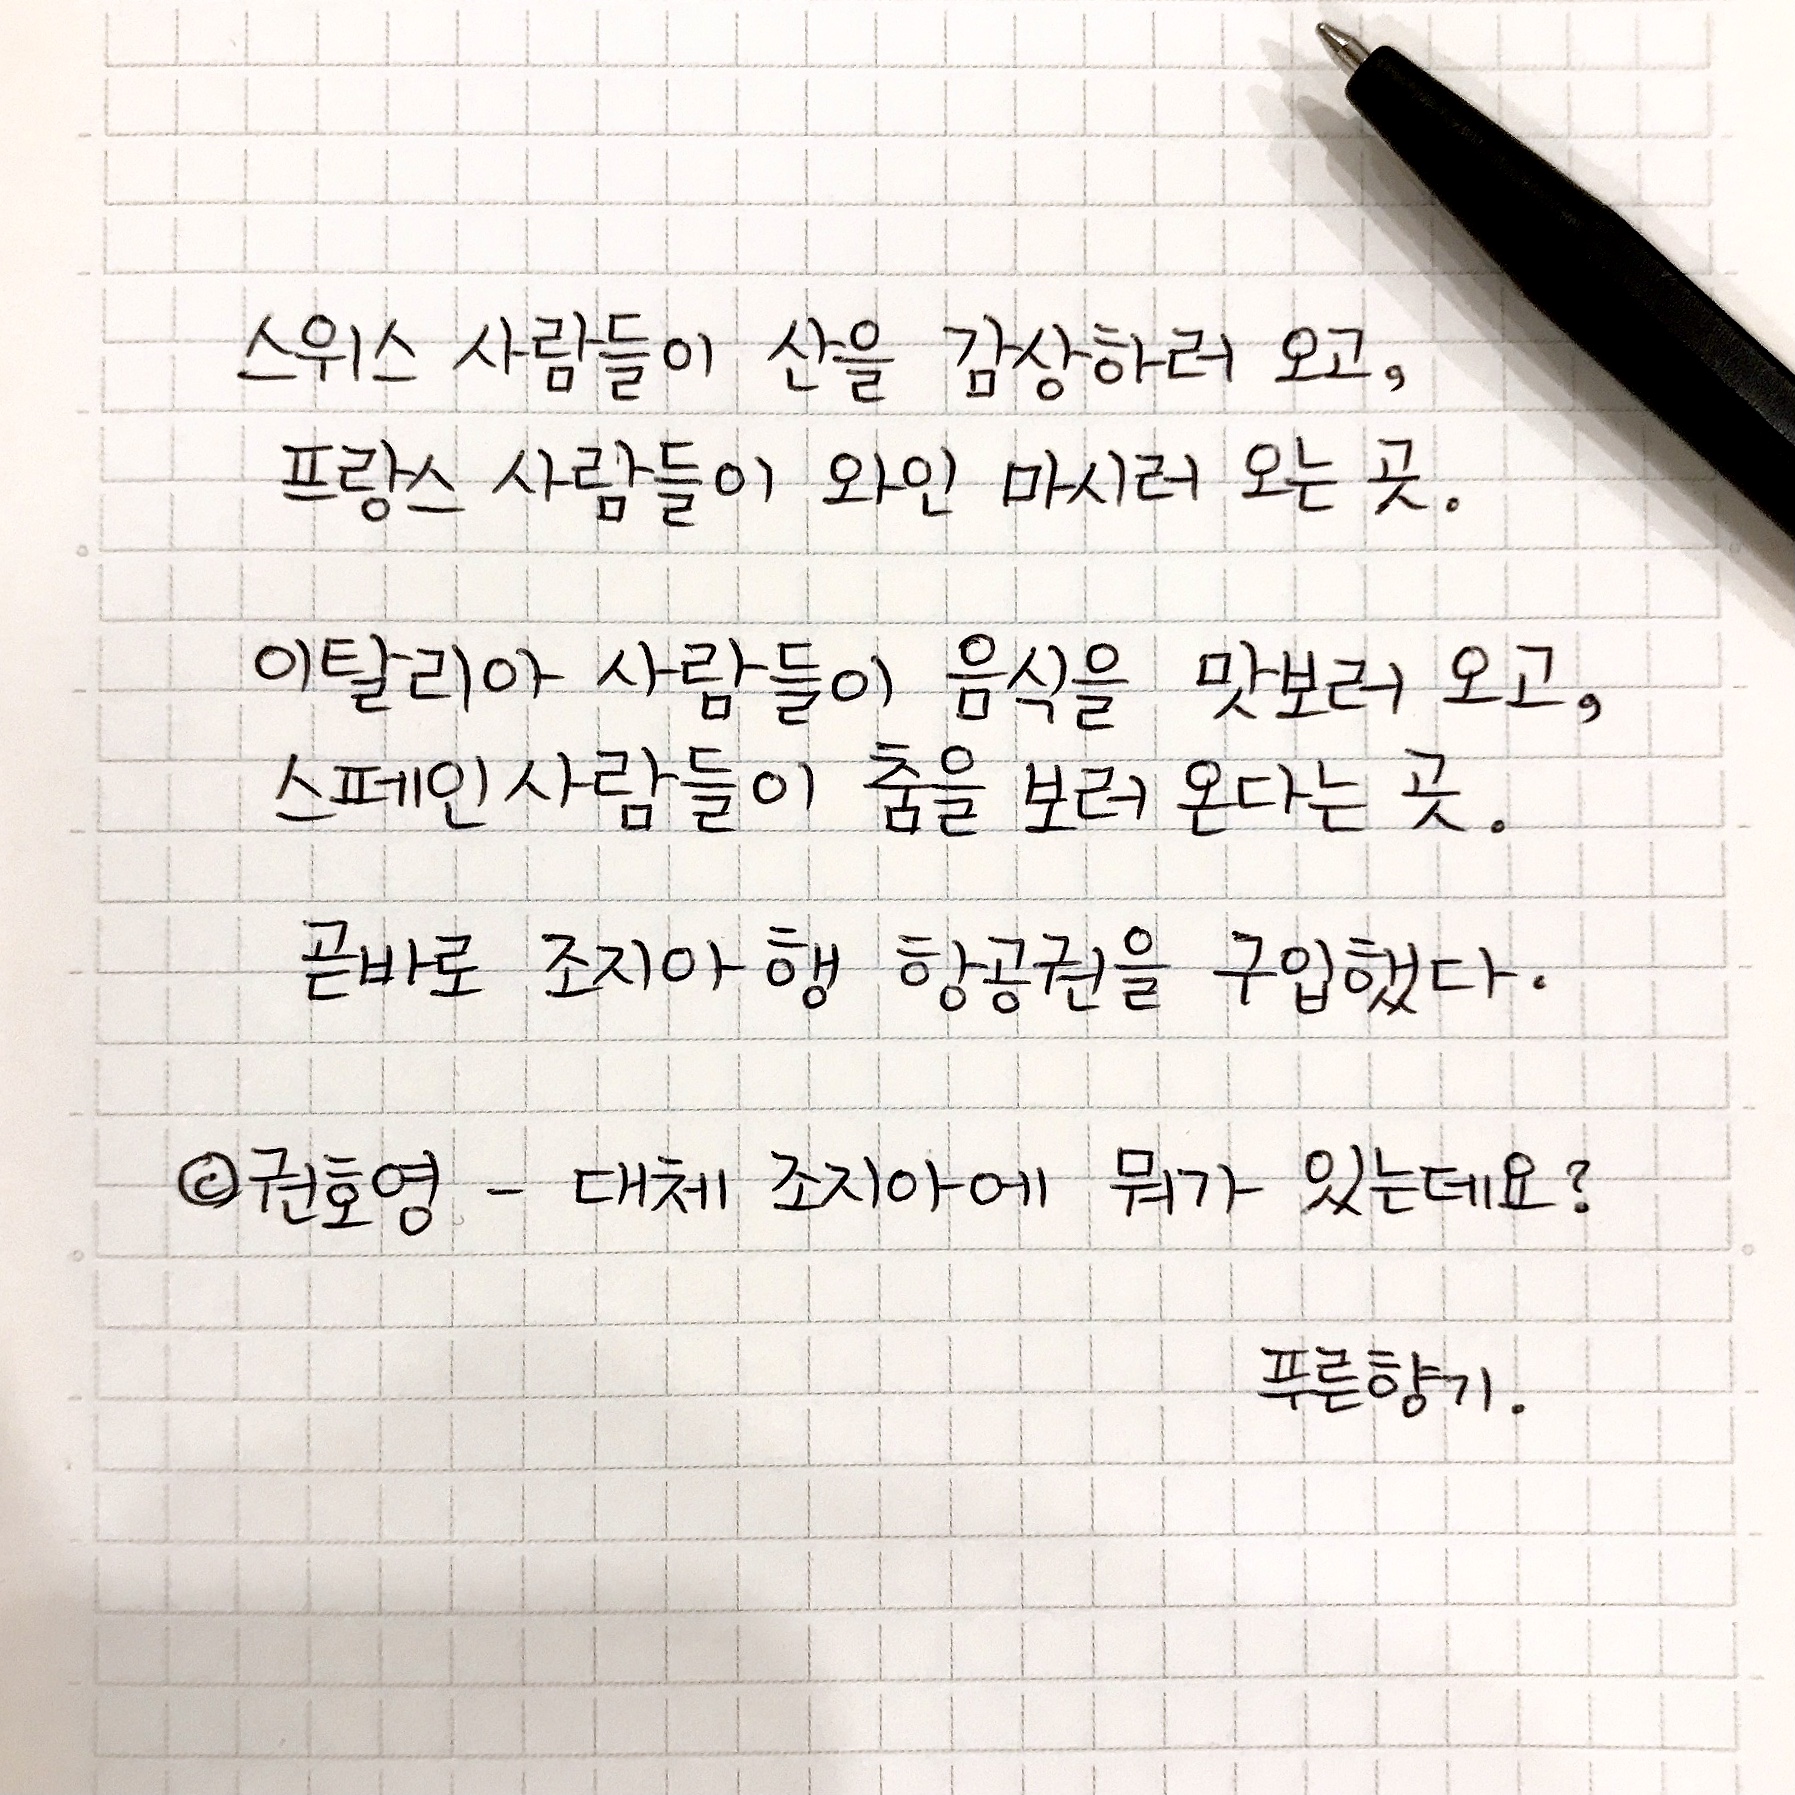 스위스 사람들이 산을 감상하러 오고,
프랑스 사람들이 와인 마시러 오는 곳.
이탈리아 사람들이 음식을 맛보러 오고,
스페인 사람들이 춤을 보러 온다는 곳.
곧바로 조지아 행 항공권을 구입했다.
©권호영 - 대체 조지아에 뭐가 있는데요?
푸른향기.